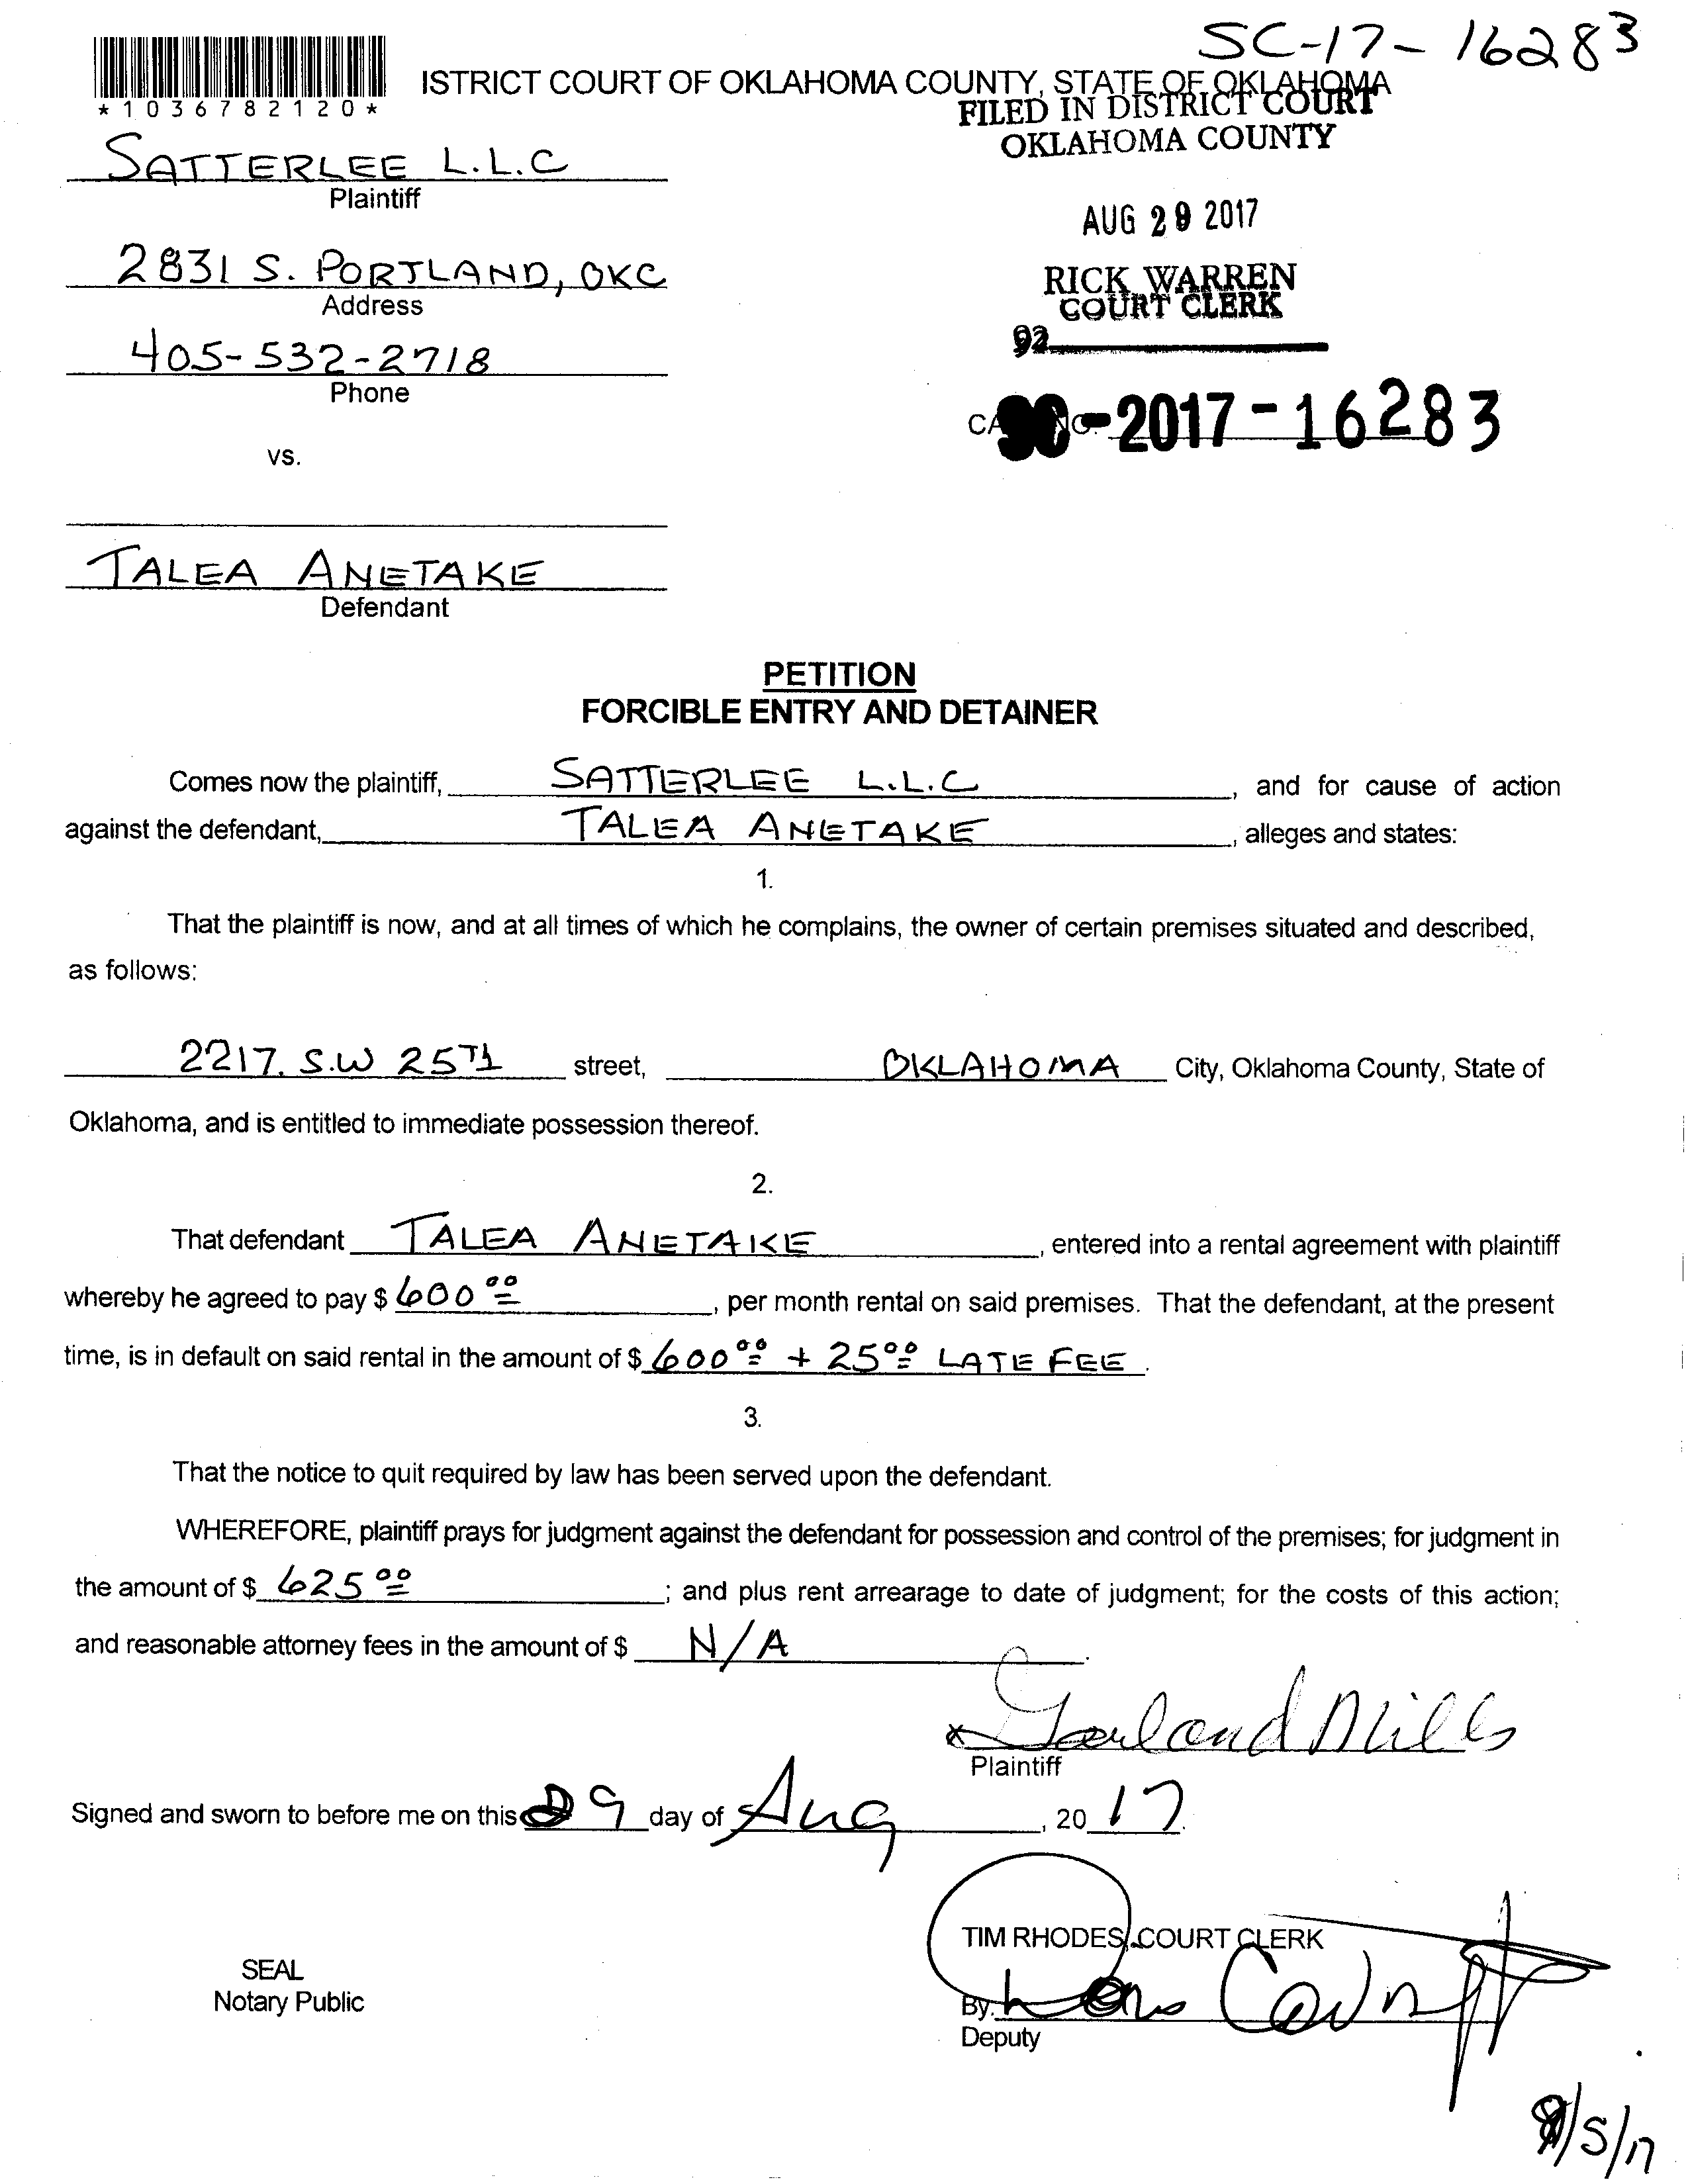 SC-17-16283
ISTRICT COURT OF OKLAHOMA COUNTY, STATE OF OKLAHOMA
*1036782120*
FILED IN DISTRICT COURT
OKLAHOMA COUNTY
SATTERLEE L.L.C
Plaintiff
AUG 29 2017
2831 S. PORTLAND, OKC
Address
RICK WARREN
COURT CLERK
92
405-532-2718
Phone
SC-2017-16283
vs.
TALEA ANETAKE
Defendant
PETITION
FORCIBLE ENTRY AND DETAINER
Comes now the plaintiff, SATTERLEE L.L.C, and for cause of action
against the defendant, TALEA ANETAKE, alleges and states:
1.
That the plaintiff is now, and at all times of which he complains, the owner of certain premises situated and described,
as follows:
2217. S.W 25TH street, OKLAHOMA City, Oklahoma County, State of
Oklahoma, and is entitled to immediate possession thereof.
2.
That defendant TALEA ANETAKE, entered into a rental agreement with plaintiff
whereby he agreed to pay $ 600 00, per month rental on said premises. That the defendant, at the present
time, is in default on said rental in the amount of $ 600 00 + 25 00 LATE FEE.
3.
That the notice to quit required by law has been served upon the defendant.
WHEREFORE, plaintiff prays for judgment against the defendant for possession and control of the premises; for judgment in
the amount of $ 625 00; and plus rent arrearage to date of judgment; for the costs of this action;
and reasonable attorney fees in the amount of $ N/A.
x Garland Mills
Plaintiff
Signed and sworn to before me on this 29 day of Aug, 20 17.
TIM RHODES, COURT CLERK
SEAL
Notary Public
By:
Deputy
/5/17